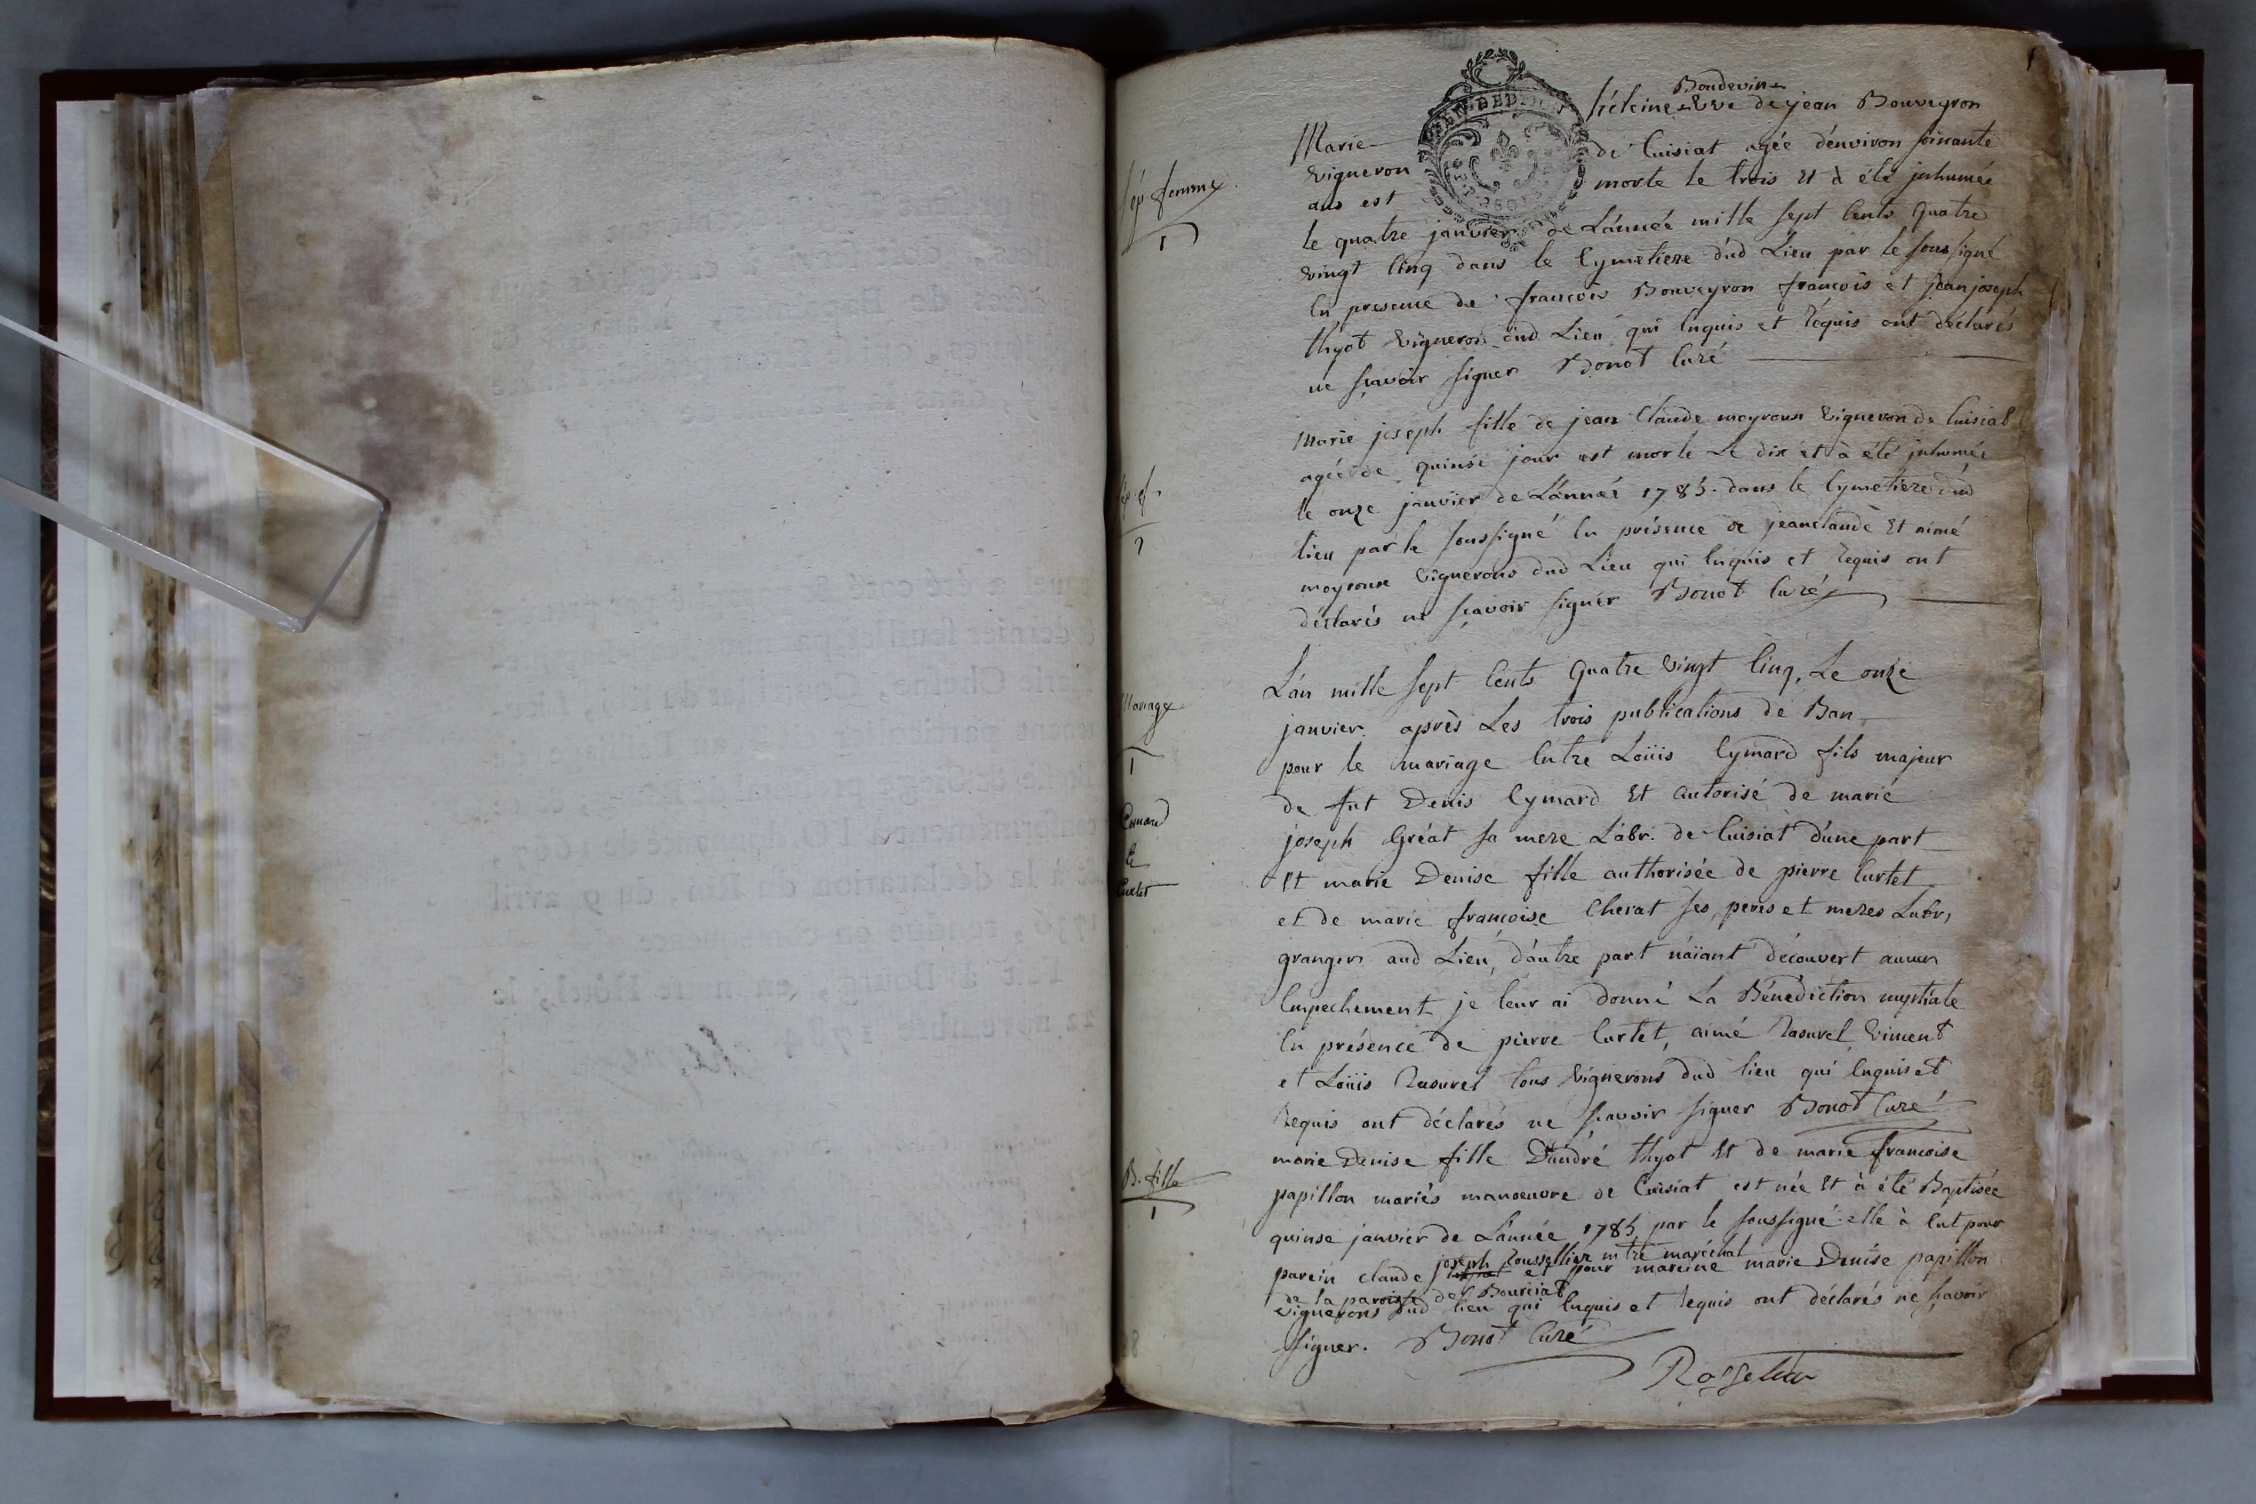 1
Boudevin
Marie héleine vve de jean Bouveyron
vigneron de Cuisiat agée d'environ soixante
ans est morte le trois et à été inhumée
le quatre janvier de L'année mille sept Cents quatre
vingt Cinq dans le Cymetiere dud Lieu par le soussigné
En presence de françois Bouveyron françois et jean joseph
thyot vigneron dud Lieu qui Enquis et Requis ont déclarés
ne sçavoir signer Bonot Curé
Sép femme
1
Marie joseph fille de jean Claude moyroux vigneron de Cuisiat
agée de quinse jour est morte Le dix et à été inhumée
le onze janvier de L'année 1785. dans le Cymetiere dud
lieu par le soussigné En présence de jeanclaude Et aimé
vignerons dud Lieu qui Enquis et Requis ont
déclarés ne sçavoir signer Bonot Curé
L'an mille sept Cents quatre vingt Cinq, Le onze
janvier après Les trois publications de Ban
pour le mariage Entre Loüis Eymard fils majeur
de fut Denis Eymard Et autorisé de marie
joseph Gréat sa mere Labr. de Cuisiat d'une part
Et marie Denise fille authorisée de pierre Curtet
et de marie françoise Cherat ses peres et meres Labr,
grangers aud Lieu, d'autre part n'aïant découvert aucun
Empechement je leur ai donné La Bénédiction nuptiale
En présence de pierre Curtet, aimé Rasurel Viment
et Loüis Rasurel tous vignerons dud lieu qui Enquis et
Requis ont déclarés ne sçavoir signer Bonot Curé
Mariage
1
et
Curtet
marie Denise fille D'andré thyot Et de marie françoise
papillon mariés manoeuvre de Cuisiat est née Et à été Baptisée
quinse janvier de L'année 1785 par le soussigné elle à Eut pour
joseph Rousselier mtre maréchal
parein claude et pour mareine marie Denise papillon
de la paroisse de Bourciat
vignerons dud lieu qui Enquis et Requis ont déclarés ne sçavoir
signer. Bonot Curé
B. fille
1